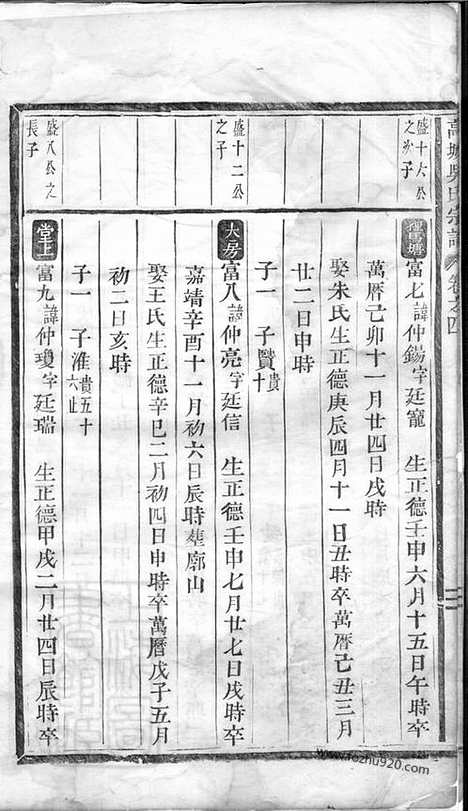 高塘吳氏宗譜 卷之四
盛十六公
之次子
塘
富七諱仲錫字廷寵 生正德壬申六月十五日午時卒
萬曆己卯十一月廿四日戌時
娶朱氏生正德庚辰四月十一日丑時卒萬曆己丑三月
廿二日申時
子一 子賢貴十
盛十二公
之子
大房
富八諱仲亮字廷信 生正德壬申七月廿七日戌時卒
嘉靖辛酉十一月初六日辰時塟廓山
娶王氏生正德辛巳二月初四日申時卒萬曆戊子五月
初二日亥時
子一 子淮貴五十六止
盛八公之
長子
堂上
富九諱仲瓊字廷瑞 生正德甲戌二月廿四日辰時卒
www.fozhu920.com